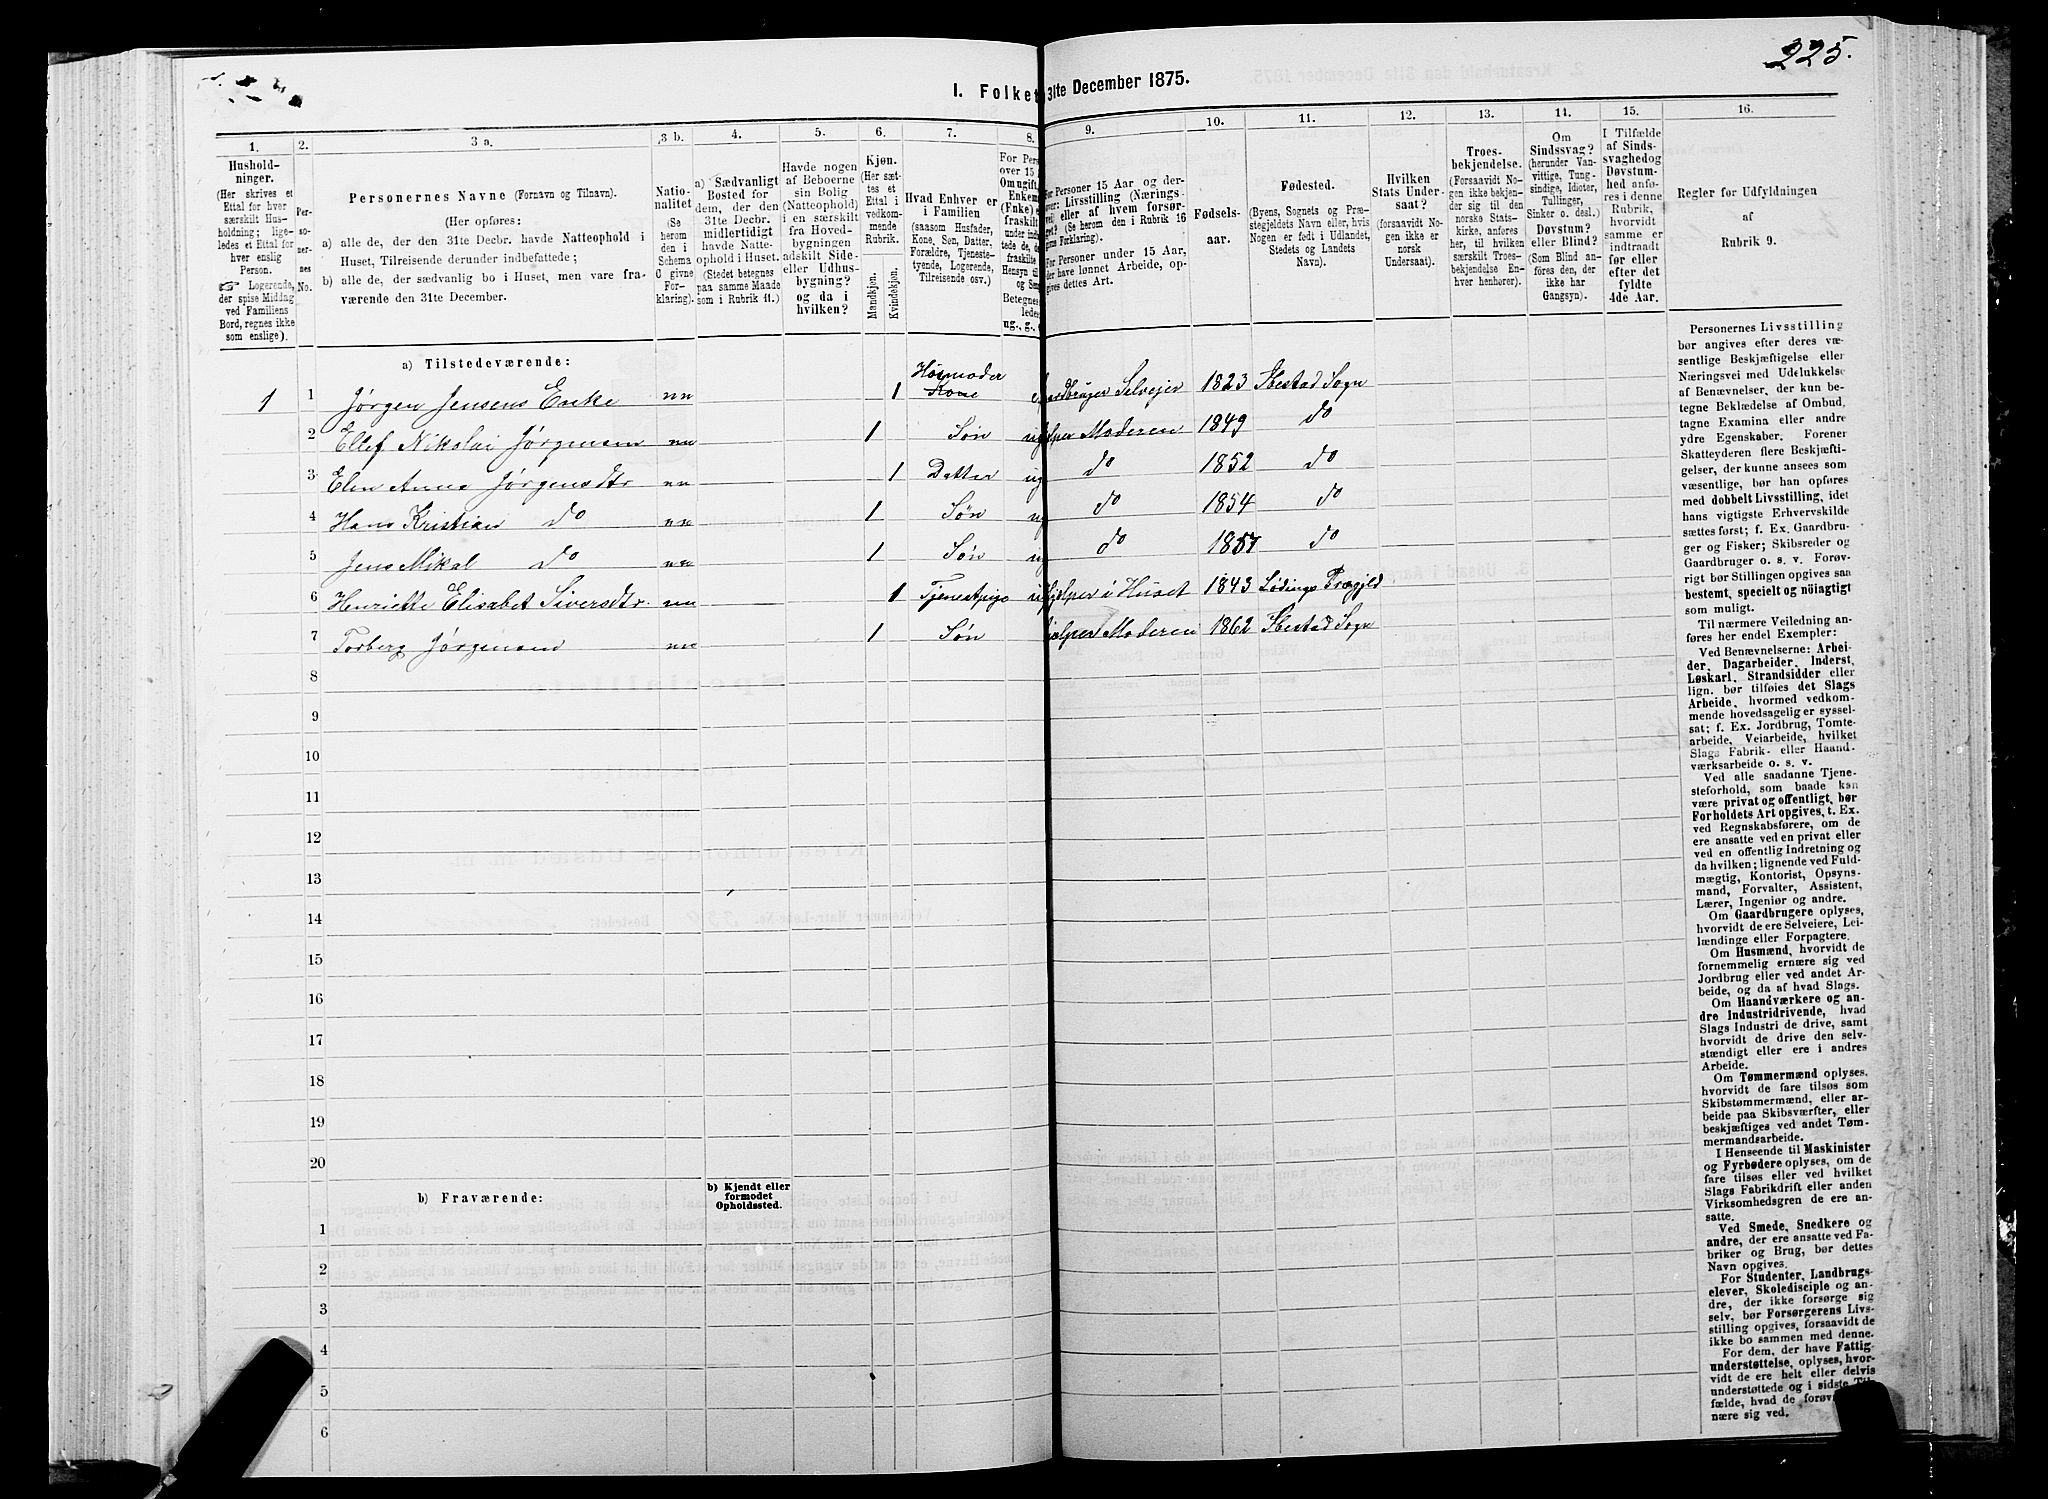 225.
I. Folket
31te December 1875.
1. 2. 3 a. 3 b. 4. 5. 6. 7. 8. 9. 10. 11. 12. 13. 14. 15. 16.
Hushold-
ninger.
(Her skrives et
Ettal for hver
særskilt Hus-
holdning; lige-
ledes et Ettal for
hver enslig
Person.
☞ Logerende,
der spise Middag
ved Familiens
Bord, regnes ikke
som enslige).
Per-
so-
ner-
nes
No.
Personernes Navne (Fornavn og Tilnavn).
(Her opføres:
a) alle de, der den 31te Decbr. havde Natteophold i
Huset, Tilreisende derunder indbefattede;
b) alle de, der sædvanlig bo i Huset, men vare fra-
værende den 31te December.
Natio-
nalitet
(Se
herom
den i
Schema
C givne
For-
klaring).
a) Sædvanligt
Bosted for
dem, der den
31te Decbr.
midlertidigt
havde Natte-
ophold i Huset.
(Stedet betegnes
paa samme Maade
som i Rubrik 11.)
Havde nogen
af Beboerne
sin Bolig
(Natteophold)
i en særskilt
fra Hoved-
bygningen
adskilt Side-
eller Udhus-
bygning?
og da i
hvilken?
Kjøn.
(Her sæt-
tes et
Ettal i
vedkom-
mende
Rubrik.
Mandkjøn.
Kvindekjøn.
Hvad Enhver er
i Familien
(saasom Husfader,
Kone, Søn, Datter,
Forældre, Tjeneste-
tyende, Logerende,
Tilreisende osv.)
For Pers
over 15
Om ugift,
Enkem
(Fnke)
fraskilt
under indb
tede de,
fraskilte
Hensyn til
og Sen
Betegnes
ledes
ug., g.,
For Personer 15 Aar og der-
over: Livsstilling (Nærings-
vei) eller af hvem forsør-
get? (Se herom den i Rubrik 16
givne Forklaring).
For Personer under 15 Aar,
der have lønnet Arbeide, op-
gives dettes Art.
Fødsels-
aar.
Fødested.
(Byens, Sognets og Præ-
stegjeldets Navn eller, hvis
Nogen er født i Udlandet,
Stedets og Landets
Navn).
Hvilken
Stats Under-
saat?
(forsaavidt No-
gen ikke er
norsk
Undersaat).
Troes-
bekjendelse.
(Forsaavidt No-
gen ikke bekjen-
der sig til den
norske Stats-
kirke, anføres
her, til hvilken
særskilt Troes-
bekjendelse En-
hver henhører).
Om
Sindssvag?
(herunder Van-
vittige, Tung-
sindige, Idioter,
Tullinger,
Sinker o. desl.)
Døvstum?
eller Blind?
(Som Blind an-
føres den, der
ikke har
Gangsyn).
I Tilfælde
af Sinds-
svaghed og
Døvstum-
hed anfø-
res i denne
Rubrik,
hvorvidt
samme er
indtraadt
før eller
efter det
fyldte
4de Aar.
Regler for Udfyldningen
af
Rubrik 9.
a) Tilstedeværende:
1 1 Jørgen Jensens Enke nn 1 Husmoder Kone Gaardbruger Selvejer 1823 Ibestad Sogn
2 Ellef Nikolai Jørgensen nn 1 Søn ug hjelper Moderen 1849 do
3 Elen Anna Jørgensdtr nn 1 Datter ug do 1852 do
4 Hans Kristian do nn 1 Søn ug do 1854 do
5 Jens Mikal do nn 1 Søn ug do 1857 do
6 Henriette Elisabet Siversdtr. nn 1 Tjenestpige ug hjelper i Huset 1843 Lødings Prægjeld
7 Torberg Jørgensen nn 1 Søn hjelper Moderen 1862 Ibestad Sogn
8
9
10
11
12
13
14
15
16
17
18
19
20
b) Fraværende:
b) Kjendt eller
formodet
Opholdssted.
1
2
3
4
5
6
Personernes Livsstilling
bør angives efter deres væ-
sentlige Beskjæftigelse eller
Næringsvei med Udelukkelse
af Benævnelser, der kun be-
tegne Beklædelse af Ombud,
tagne Examina eller andre
ydre Egenskaber. Forener
Skatteyderen flere Beskjæfti-
gelser, der kunne ansees som
væsentlige, bør han opføres
med dobbelt Livsstilling, idet
hans vigtigste Erhvervskilde
sættes først; f. Ex. Gaardbru-
ger og Fisker; Skibsreder og
Gaardbruger o. s. v. Forøv-
rigt bør Stillingen opgives saa
bestemt, specielt og nøiagtigt
som muligt.
Til nærmere Veiledning an-
føres her endel Exempler:
Ved Benævnelserne: Arbei-
der, Dagarbeider, Inderst,
Løskarl, Strandsidder eller
lign. bør tilføies det Slags
Arbeide, hvormed vedkom-
mende hovedsagelig er syssel-
sat; f. Ex. Jordbrug, Tomte-
arbeide, Veiarbeide, hvilket
Slags Fabrik- eller Haand-
værksarbeide o. s. v.
Ved alle saadanne Tjene-
steforhold, som baade kan
være privat og offentligt, bør
Forholdets Art opgives, t. Ex.
ved Regnskabsførere, om de
ere ansatte ved en privat eller
ved en offentlig Indretning og
da hvilken; lignende ved Fuld-
mægtig, Kontorist, Opsyns-
mand, Forvalter, Assistent,
Lærer, Ingeniør og andre.
Om Gaardbrugere oplyses,
hvorvidt de ere Selveiere, Lei-
lændinge eller Forpagtere.
Om Husmænd, hvorvidt de
fornemmelig ernære sig ved
Jordbrug eller ved andet Ar-
beide, og da af hvad Slags.
Om Haandværkere og an-
dre Industridrivende, hvad
Slags Industri de drive, samt
hvorvidt de drive den selv-
stændigt eller ere i andres
Arbeide.
Om Tømmermænd oplyses,
hvorvidt de fare tilsøs som
Skibstømmermænd, eller ar-
beide paa Skibsværfter, eller
beskjæftiges ved andet Tøm-
mermandsarbeide.
I Henseende til Maskinister
og Fyrbødere oplyses, om de
fare tilsøs eller ved hvilket
Slags Fabrikdrift eller anden
Virksomhedsgren de ere an-
satte.
Ved Smede, Snedkere og
andre, der ere ansatte ved Fa-
briker og Brug, bør dettes
Navn opgives.
For Studenter, Landbrugs-
elever, Skoledisciple og an-
dre, der ikke forsørge sig
selv, bør Forsørgerens Livs-
stilling opgives, forsaavidt de
ikke bo sammen med denne.
For dem, der have Fattig-
understøttelse, oplyses, hvor-
vidt de ere helt eller delvis
understøttede og i sidste Til-
fælde, hvad de forøvrigt
nære sig ved.